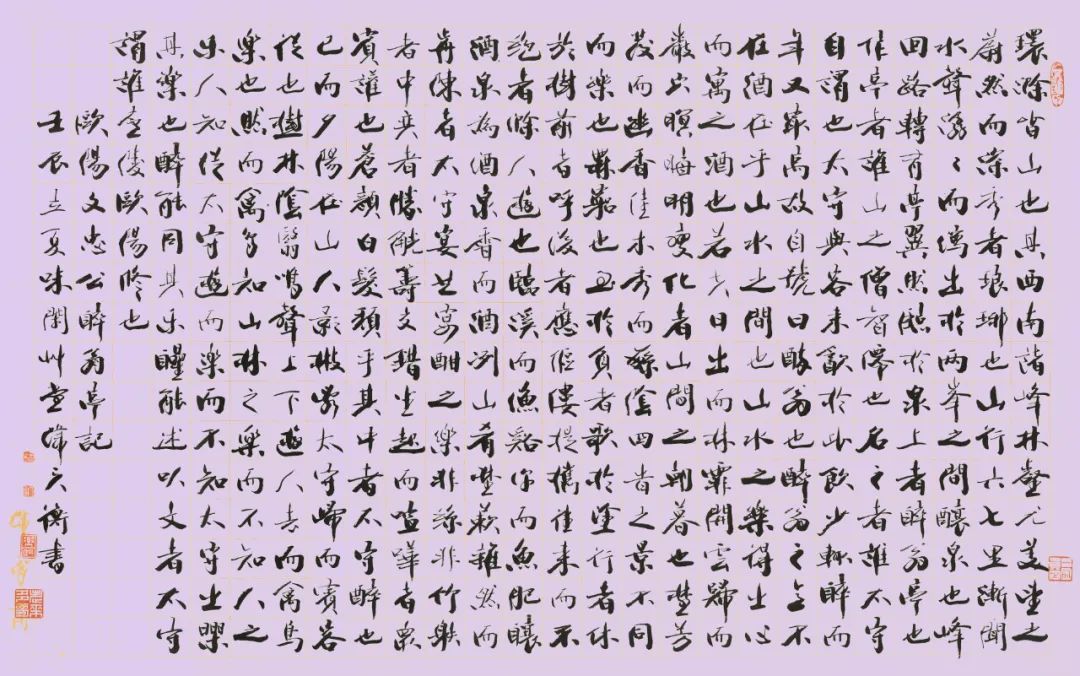 環滁皆山也其西南諸峰林壑尤美望之
蔚然而深秀者琅琊也山行六七里漸聞
水聲潺々而瀉出於兩峯之間釀泉也峰
回路轉有亭翼然臨於泉上者醉翁亭也
作亭者誰山之僧智僊也名之者誰太守
自謂也太守與客来飲於此飲少輒醉而
年又最高故自號曰醉翁也醉翁之意不
在酒在乎山水之間也山水之樂得之心
而寓之酒也若夫日出而林霏開雲歸而
巖穴暝晦明變化者山間之朝暮也野芳
發而幽香佳木秀而繁陰四時之景不同
而樂也無窮也至於負者歌於塗行者休
於樹前者呼後者應傴僂提攜往来而不
絶者滁人遊也臨溪而漁谿深而魚肥釀
酒泉為酒泉香而酒洌山肴野蔌雜然而
前陳者太守宴也宴酣之樂非絲非竹射
者中奕者勝觥籌交錯坐起而喧譁者衆
賓讙也蒼顏白髮頹乎其中者太守醉也
已而夕陽在山人影散亂太守歸而賓客
從也樹林陰翳鳴聲上下遊人去而禽鳥
樂也然而禽鳥知山林之樂而不知人之
樂人知從太守遊而樂而不知太守之樂
其樂也醉能同其樂醒能述以文者太守
謂誰廬陵歐陽修也
歐陽文忠公醉翁亭記
壬辰立夏味閑艸堂書